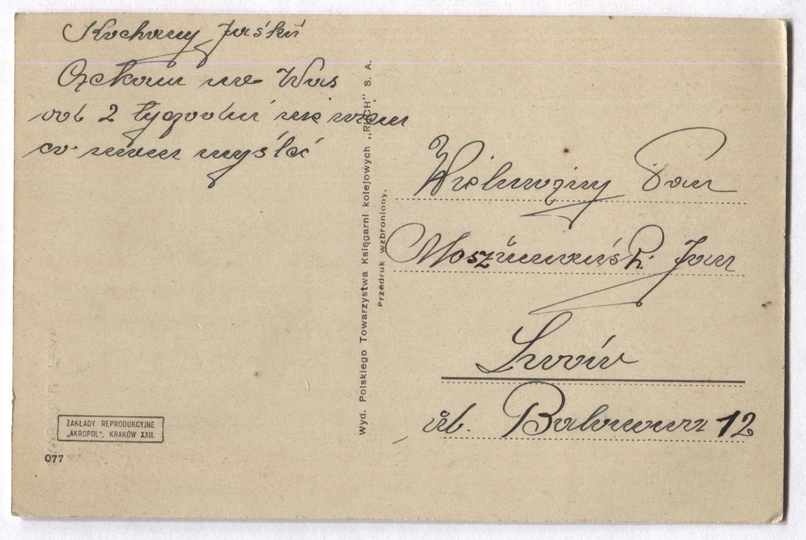 Kochany Jaśku
Czekam na Was
od 2 tygodni nie wiem
co mam myśleć
Wielmożny Pan
Jan
Lwów
ul. 12
Wyd. Polskiego Towarzystwa Księgarni kolejowych „RUCH" S. A.
Przedruk wzbroniony.
ZAKŁADY REPRODUKCYJNE
„AKROPOL", KRAKÓW XXII.
077